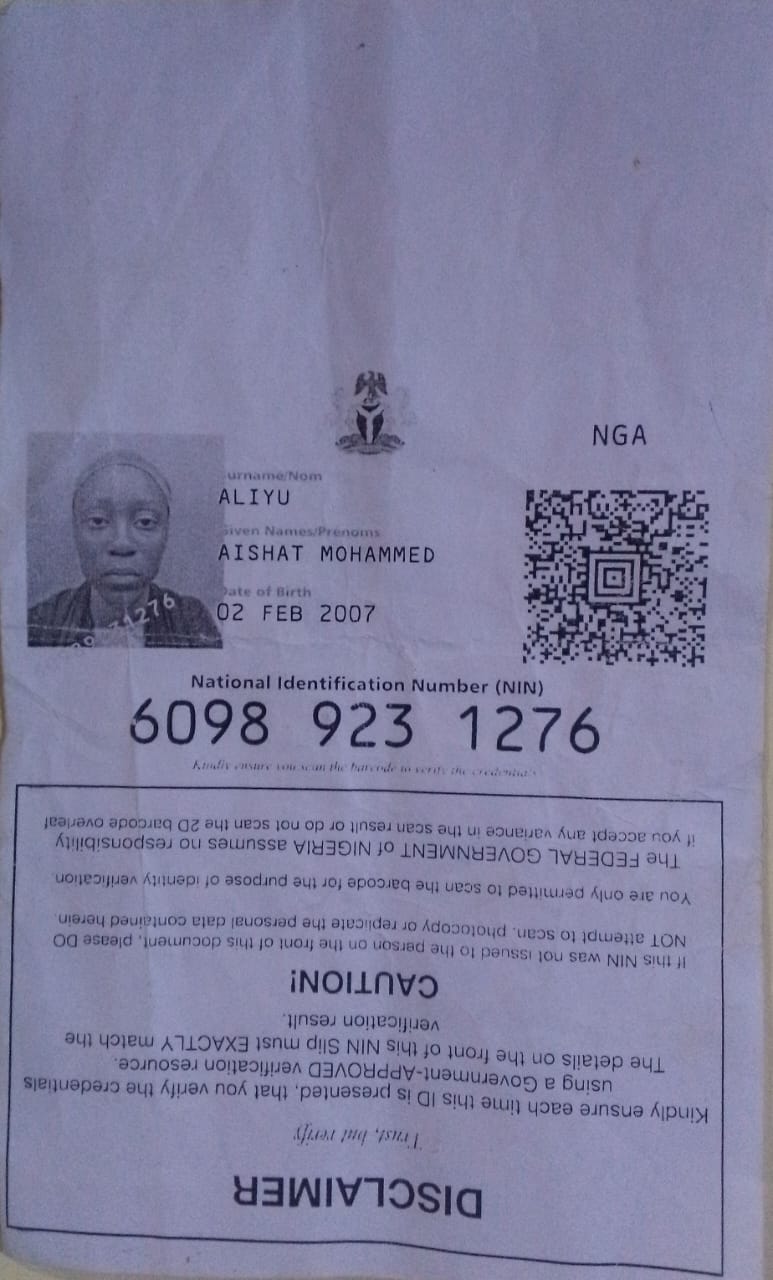 NGA
Surname/Nom
ALIYU
Given Names/Prenoms
AISHAT MOHAMMED
Date of Birth
02 FEB 2007
1276
National Identification Number (NIN)
6098 923 1276
Kindly ensure you scan the barcode to verify the credentials
DISCLAIMER
Trust, but verify
Kindly ensure each time this ID is presented, that you verify the credentials
using a Government-APPROVED verification resource.
The details on the front of this NIN Slip must EXACTLY match the
verification result.
CAUTION!
If this NIN was not issued to the person on the front of this document, please DO
NOT attempt to scan, photocopy or replicate the personal data contained herein.
You are only permitted to scan the barcode for the purpose of identity verification
The FEDERAL GOVERNMENT of NIGERIA assumes no responsibility
if you accept any variance in the scan result or do not scan the 2D barcode overleaf